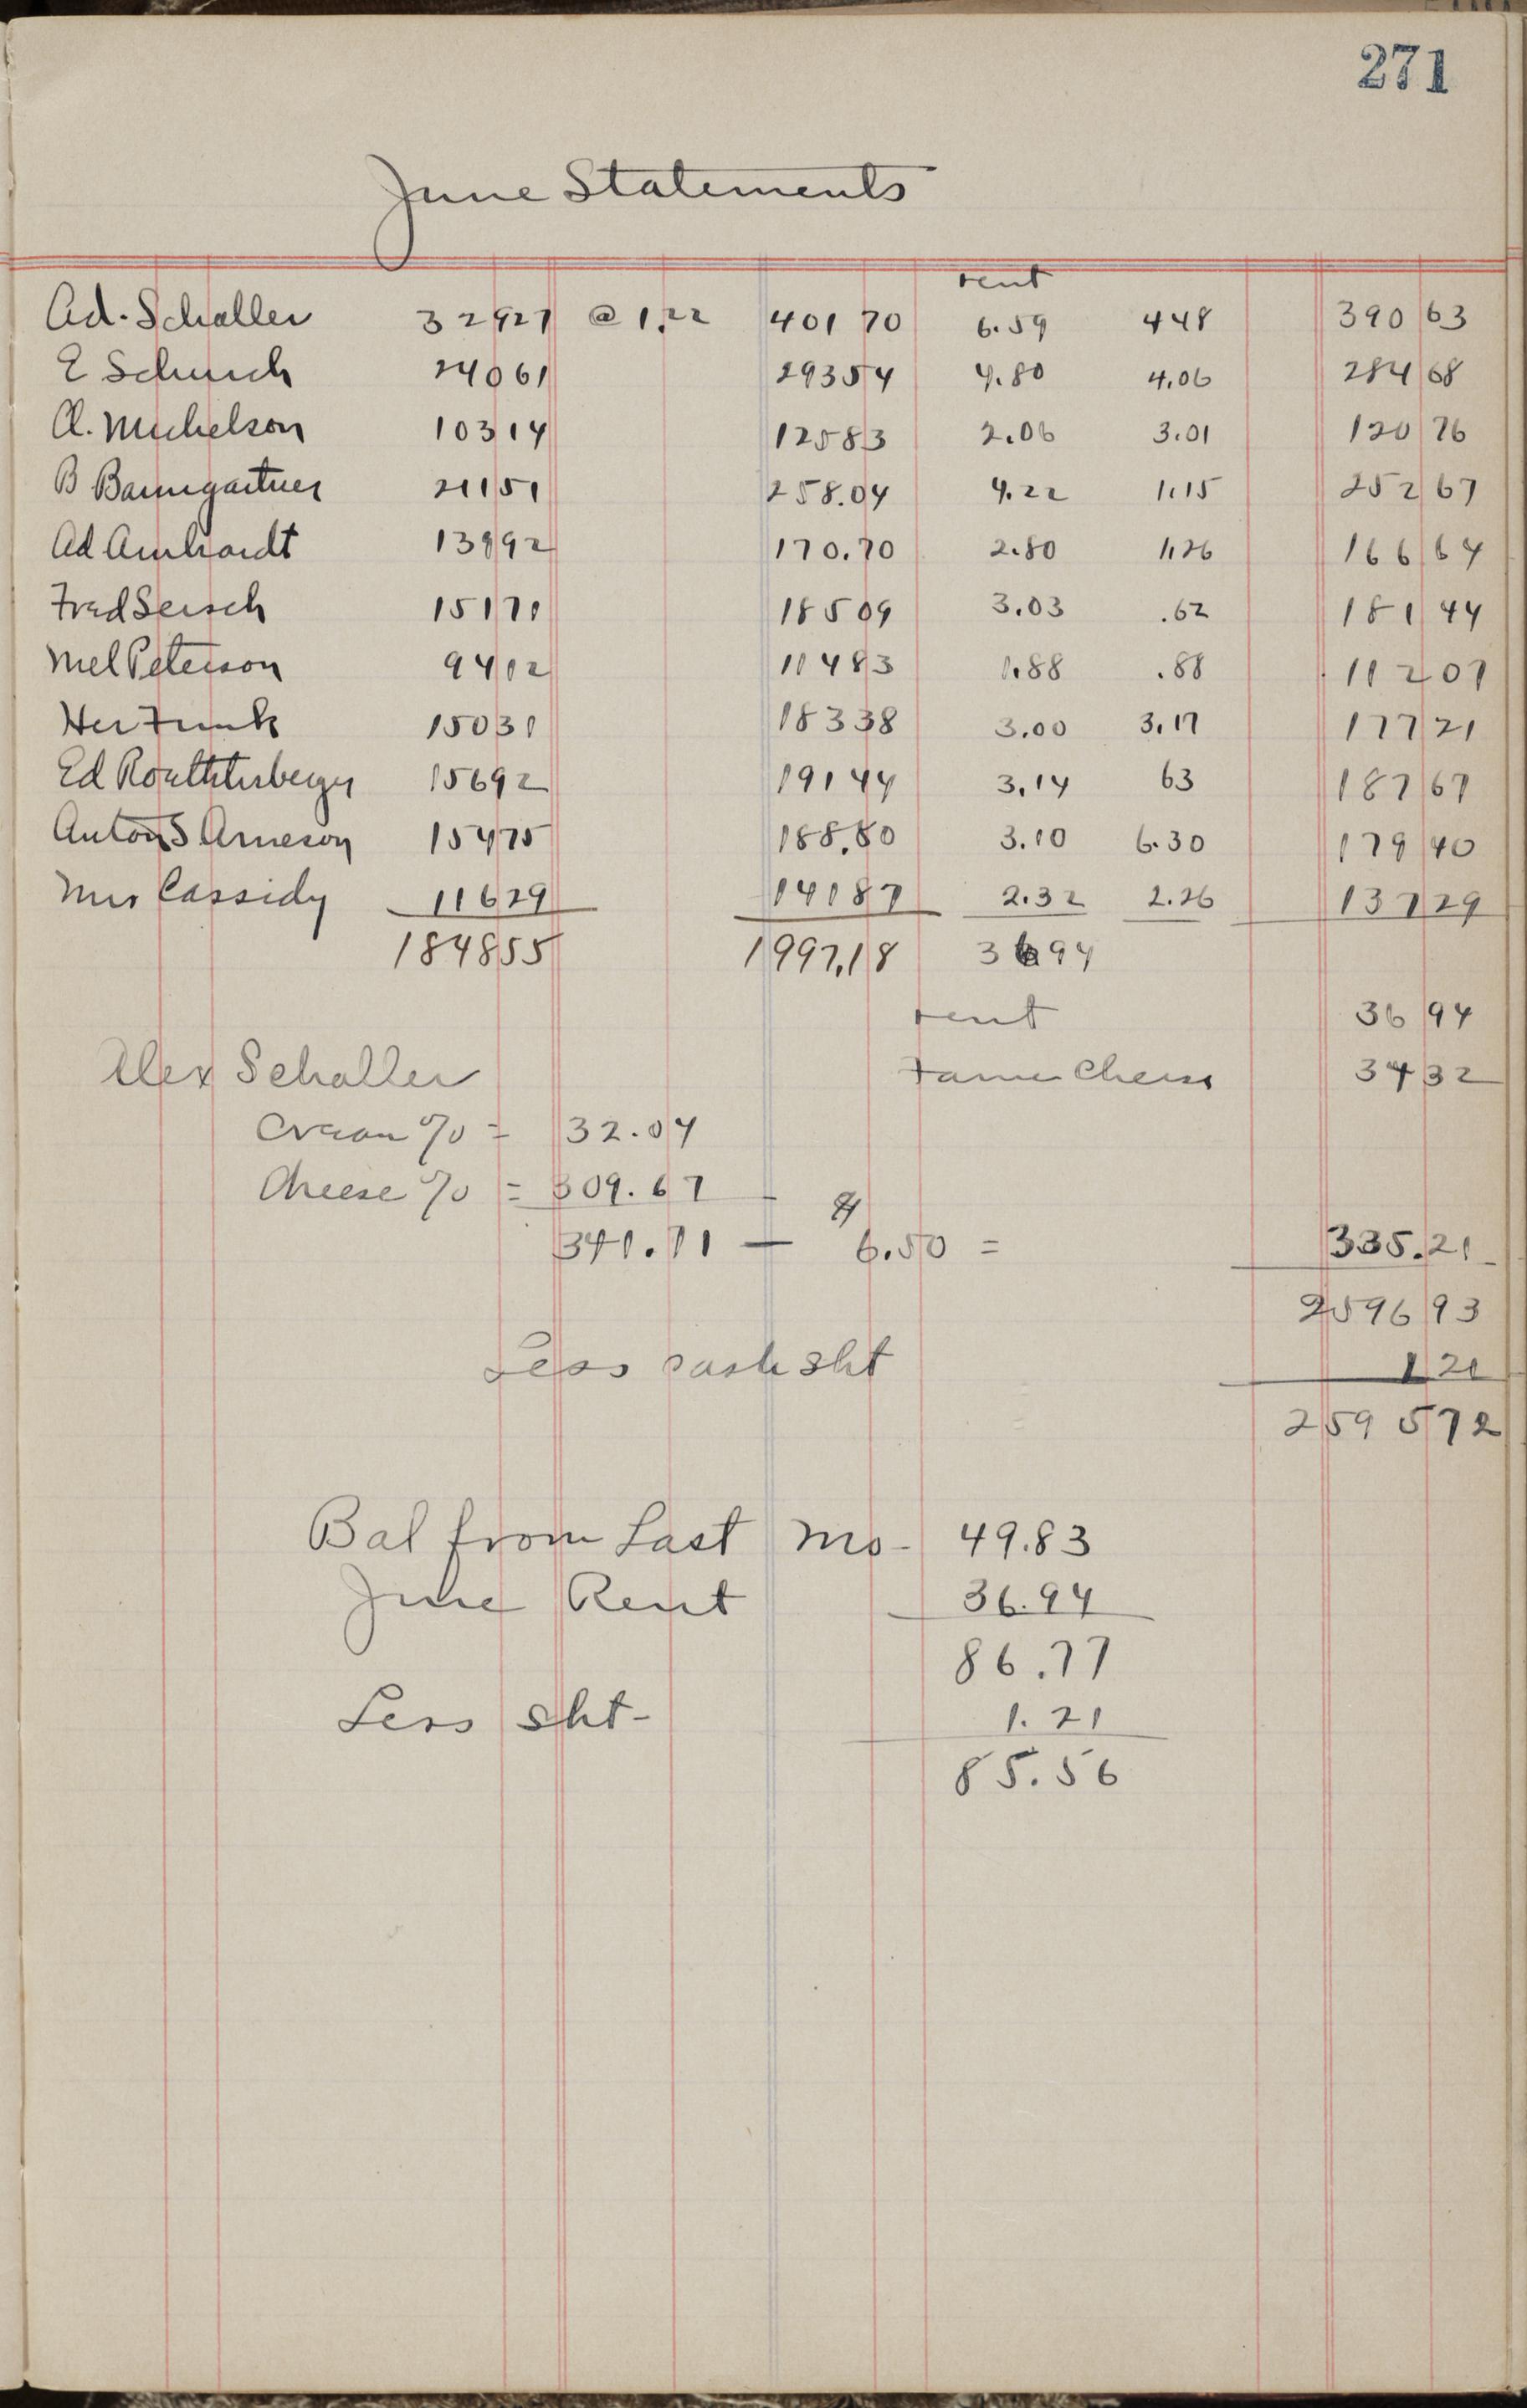 271
June Statements
rent
Ad. Schaller 32927 @ 1.22 401 70 6.59 448 390 63
E Schurch 24061 29354 4.80 4.06 284 68
A. Michelson 10314 12583 2.06 3.01 120 76
B Baumgartner 21151 258.04 4.22 1.15 252 67
Ad Amhardt 13992 170.70 2.80 1.26 166 64
Fred Sersch 15171 185 09 3.03 .62 181 44
Mel Peterson 9412 114 83 1.88 .88 112 07
Her Funk 15031 183 38 3.00 3.17 177 21
Ed Roathlisberger 15692 191 44 3.14 63 187 67
Anton S Arneson 15475 188.80 3.10 6.30 179 40
Mrs Cassidy 11629 14187 2.32 2.26 137 29
184855 1997.18 36 94
rent 36 94
Alex Schaller Farmer Cheese 34 32
Cream % = 32.04
Cheese % = 309.67
341.71 — 6.50 = 335.21
2596 93
Less cash sht 1 21
259 572
Bal from Last Mo- 49.83
June Rent 36.94
86.77
Less sht- 1.21
85.56